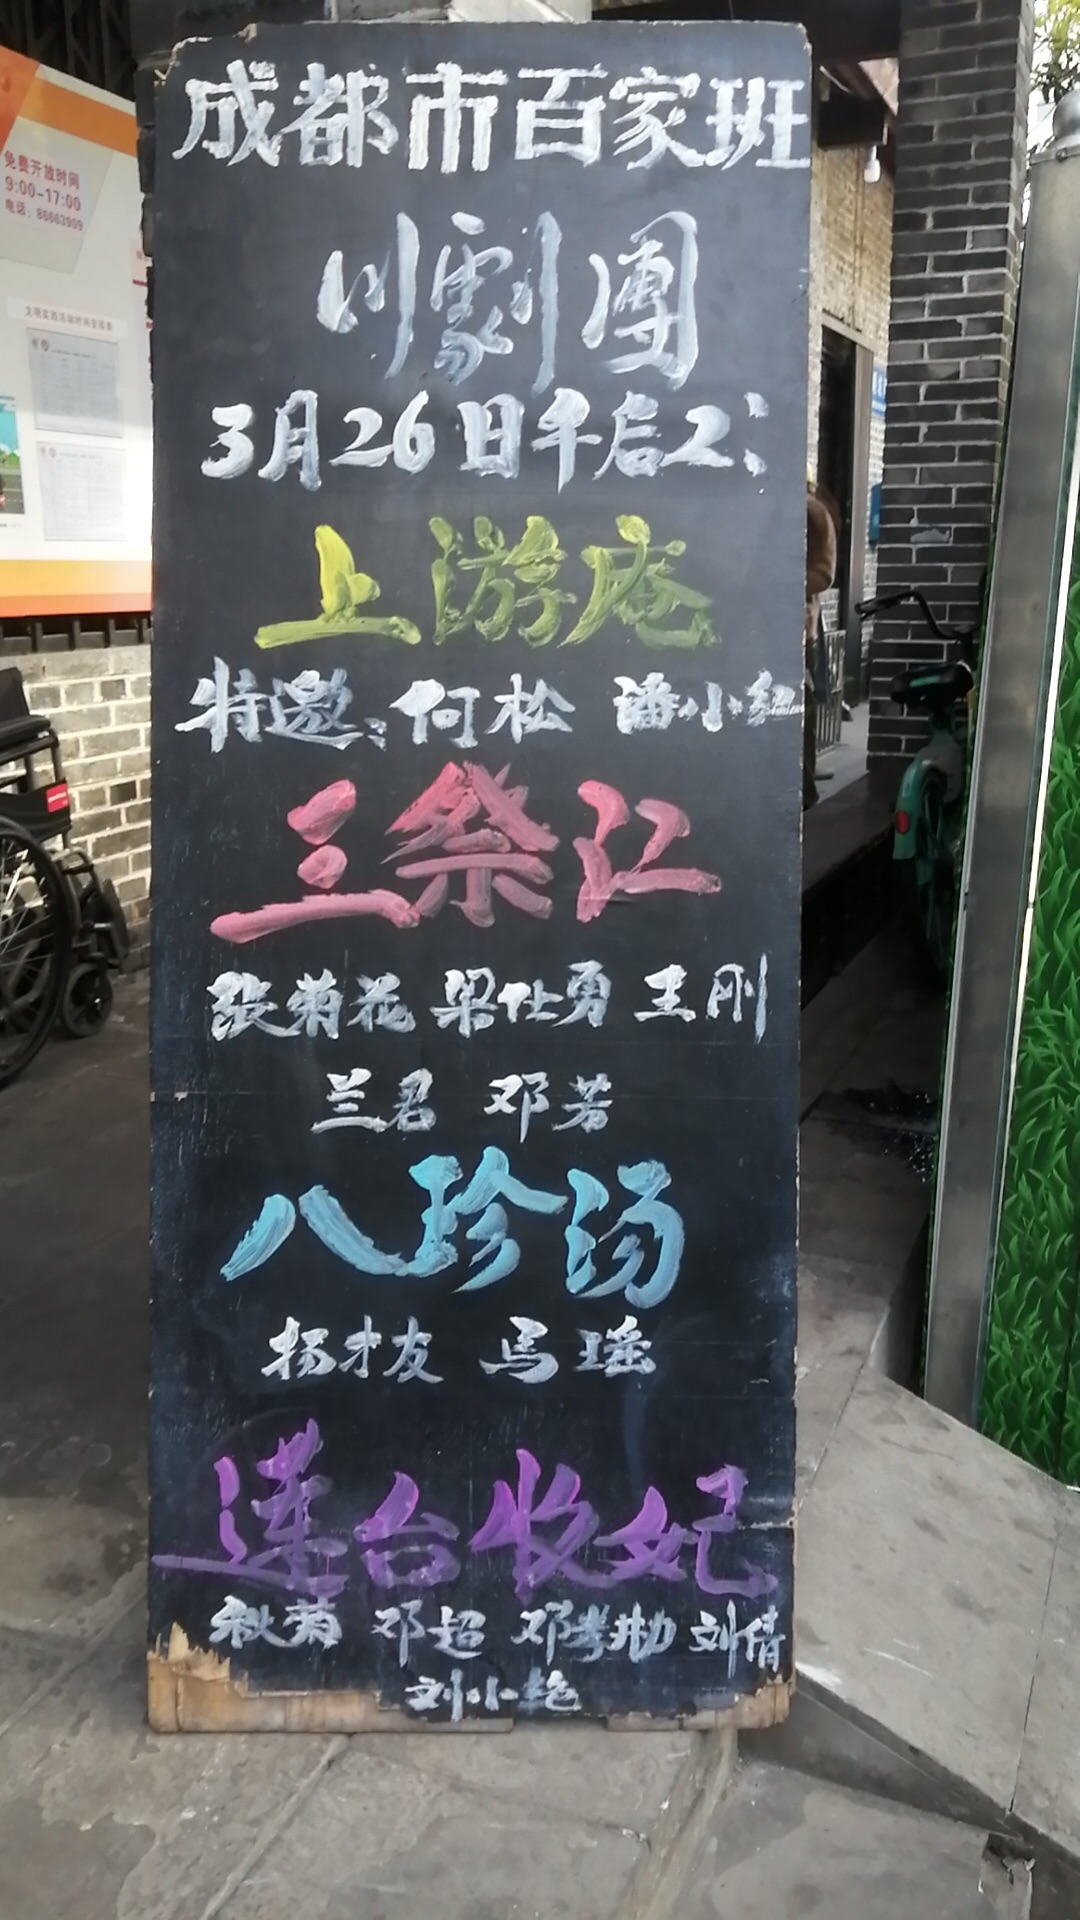 免费开放时间
9:00-17:00
电话：86663909
文明实践活动时间安排表
成都市百家班
川劇團
3月26日午后2:
上游庵
特邀:何松 潘小红
三祭江
张菊花 梁仕勇 王刚
兰君 邓芳
八珍汤
杨才友 马瑶
莲台收妃
秋菊 邓超 刘倩
刘小艳